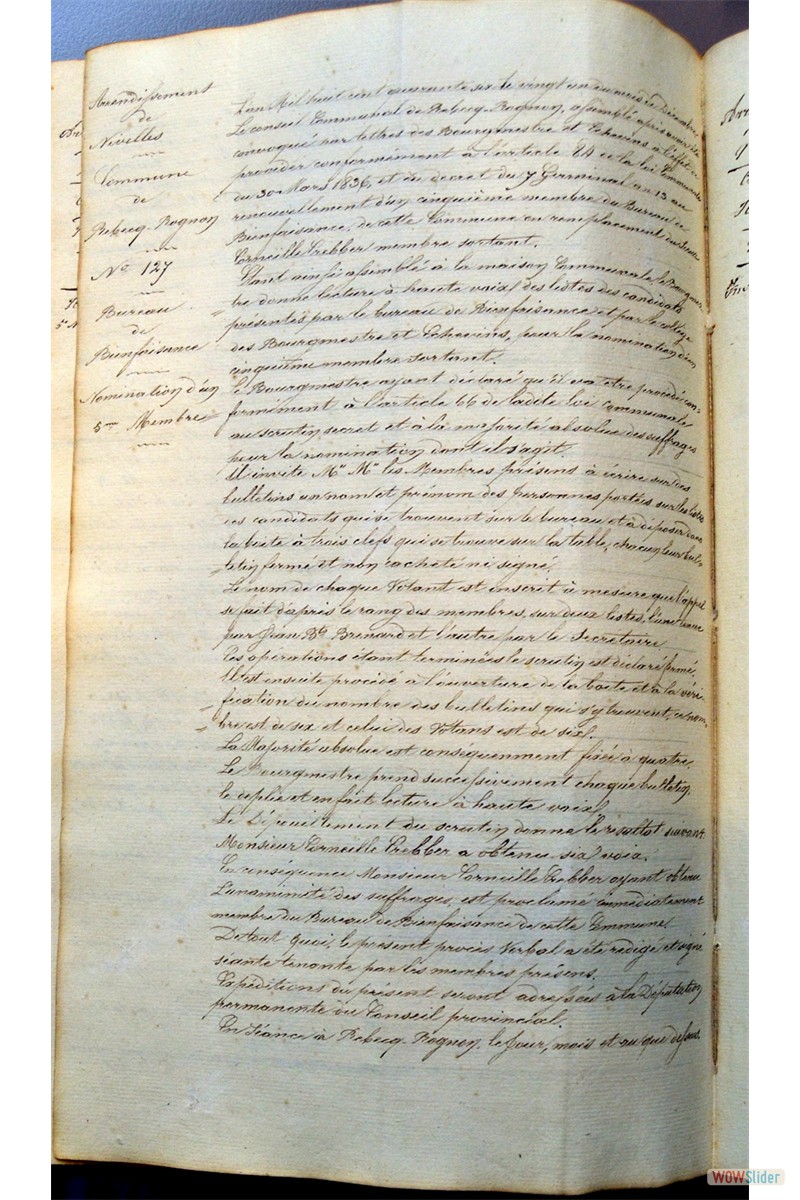 Arrondissement
de
Nivelles
Commune
de
Rebecq-Rognon
N° 127
Bureau
de
Bienfaisance
Nomination d'un
5me Membre
L'an Mil huit cent quarante six le vingt un du mois de Décembre
Le conseil Communal de Rebecq-Rognon, assemblé après avoir été
convoqué par lettres des Bourgmestre et Echevins à l'effet de
procéder conformément à l'article 84 de la loi Communale
du 30 Mars 1836, et du décret du 7 Germinal an 13 au
renouvellement d'un cinquième membre du Bureau de
Bienfaisance, de cette Commune en remplacement du
Corneille Crebber membre sortant.
Etant ainsi assemblé à la maison Communale, le Bourgmes-
tre donne lecture à haute voix des listes des candidats
présentés par le bureau de Bienfaisance et par le collège
des Bourgmestre et Echevins, pour la nomination d'un
cinquième membre sortant.
Le Bourgmestre ayant déclaré qu'il va être procédé con-
formément à l'article 66 de ladite loi communale
au scrutin secret et à la majorité absolue des suffrages
pour la nomination dont il s'agit.
Il invite Mrs Mrs les Membres présens à écrire sur des
bulletins un nom et prénom des personnes portées sur les listes
des candidats qui se trouvent sur le bureau et à déposer dans
la boite à trois clefs qui se trouve sur la table, chacun leur bul-
letin fermé et non cacheté ni signé.
Le nom de chaque Votant est inscrit à mesure que l'appel
se fait d'après le rang des membres, sur deux listes, l'une tenue
par Jean Bte Brenard et l'autre par le Secretaire.
Ces opérations étant terminées le scrutin est déclaré fermé.
Il est ensuite procédé à l'ouverture de la boete et à la véri-
fication du nombre des bulletins qui s'y trouvent, ce nom-
bre est de six et celui des Votans est de six.
La Majorité absolue est conséquemment fixée à quatre.
Le Bourgmestre prend successivement chaque bulletin,
le deplie et en fait lecture à haute voix.
Le Dépouillement du scrutin donne le resultat suivant.
Monsieur Corneille Crebber a obtenu six voix.
En conséquence Monsieur Corneille Crebber ayant obtenu
L'unanimité des suffrages, est proclamé immédiatement
membre du Bureau de Bienfaisance de cette Commune.
De tout quoi, le présent procès Verbal a été rédigé et signé
séante tenante par les membres présens.
Expéditions du présent seront adressées à la Députation
permanente du Conseil provincial.
En Séance à Rebecq-Rognon, le jour, mois et an que dessus.
WOWSlider